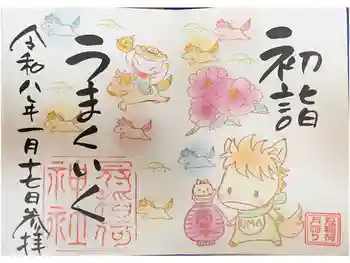 初詣
うまくいく
令和八年一月十七日参拝
神社
UMA
月詣り